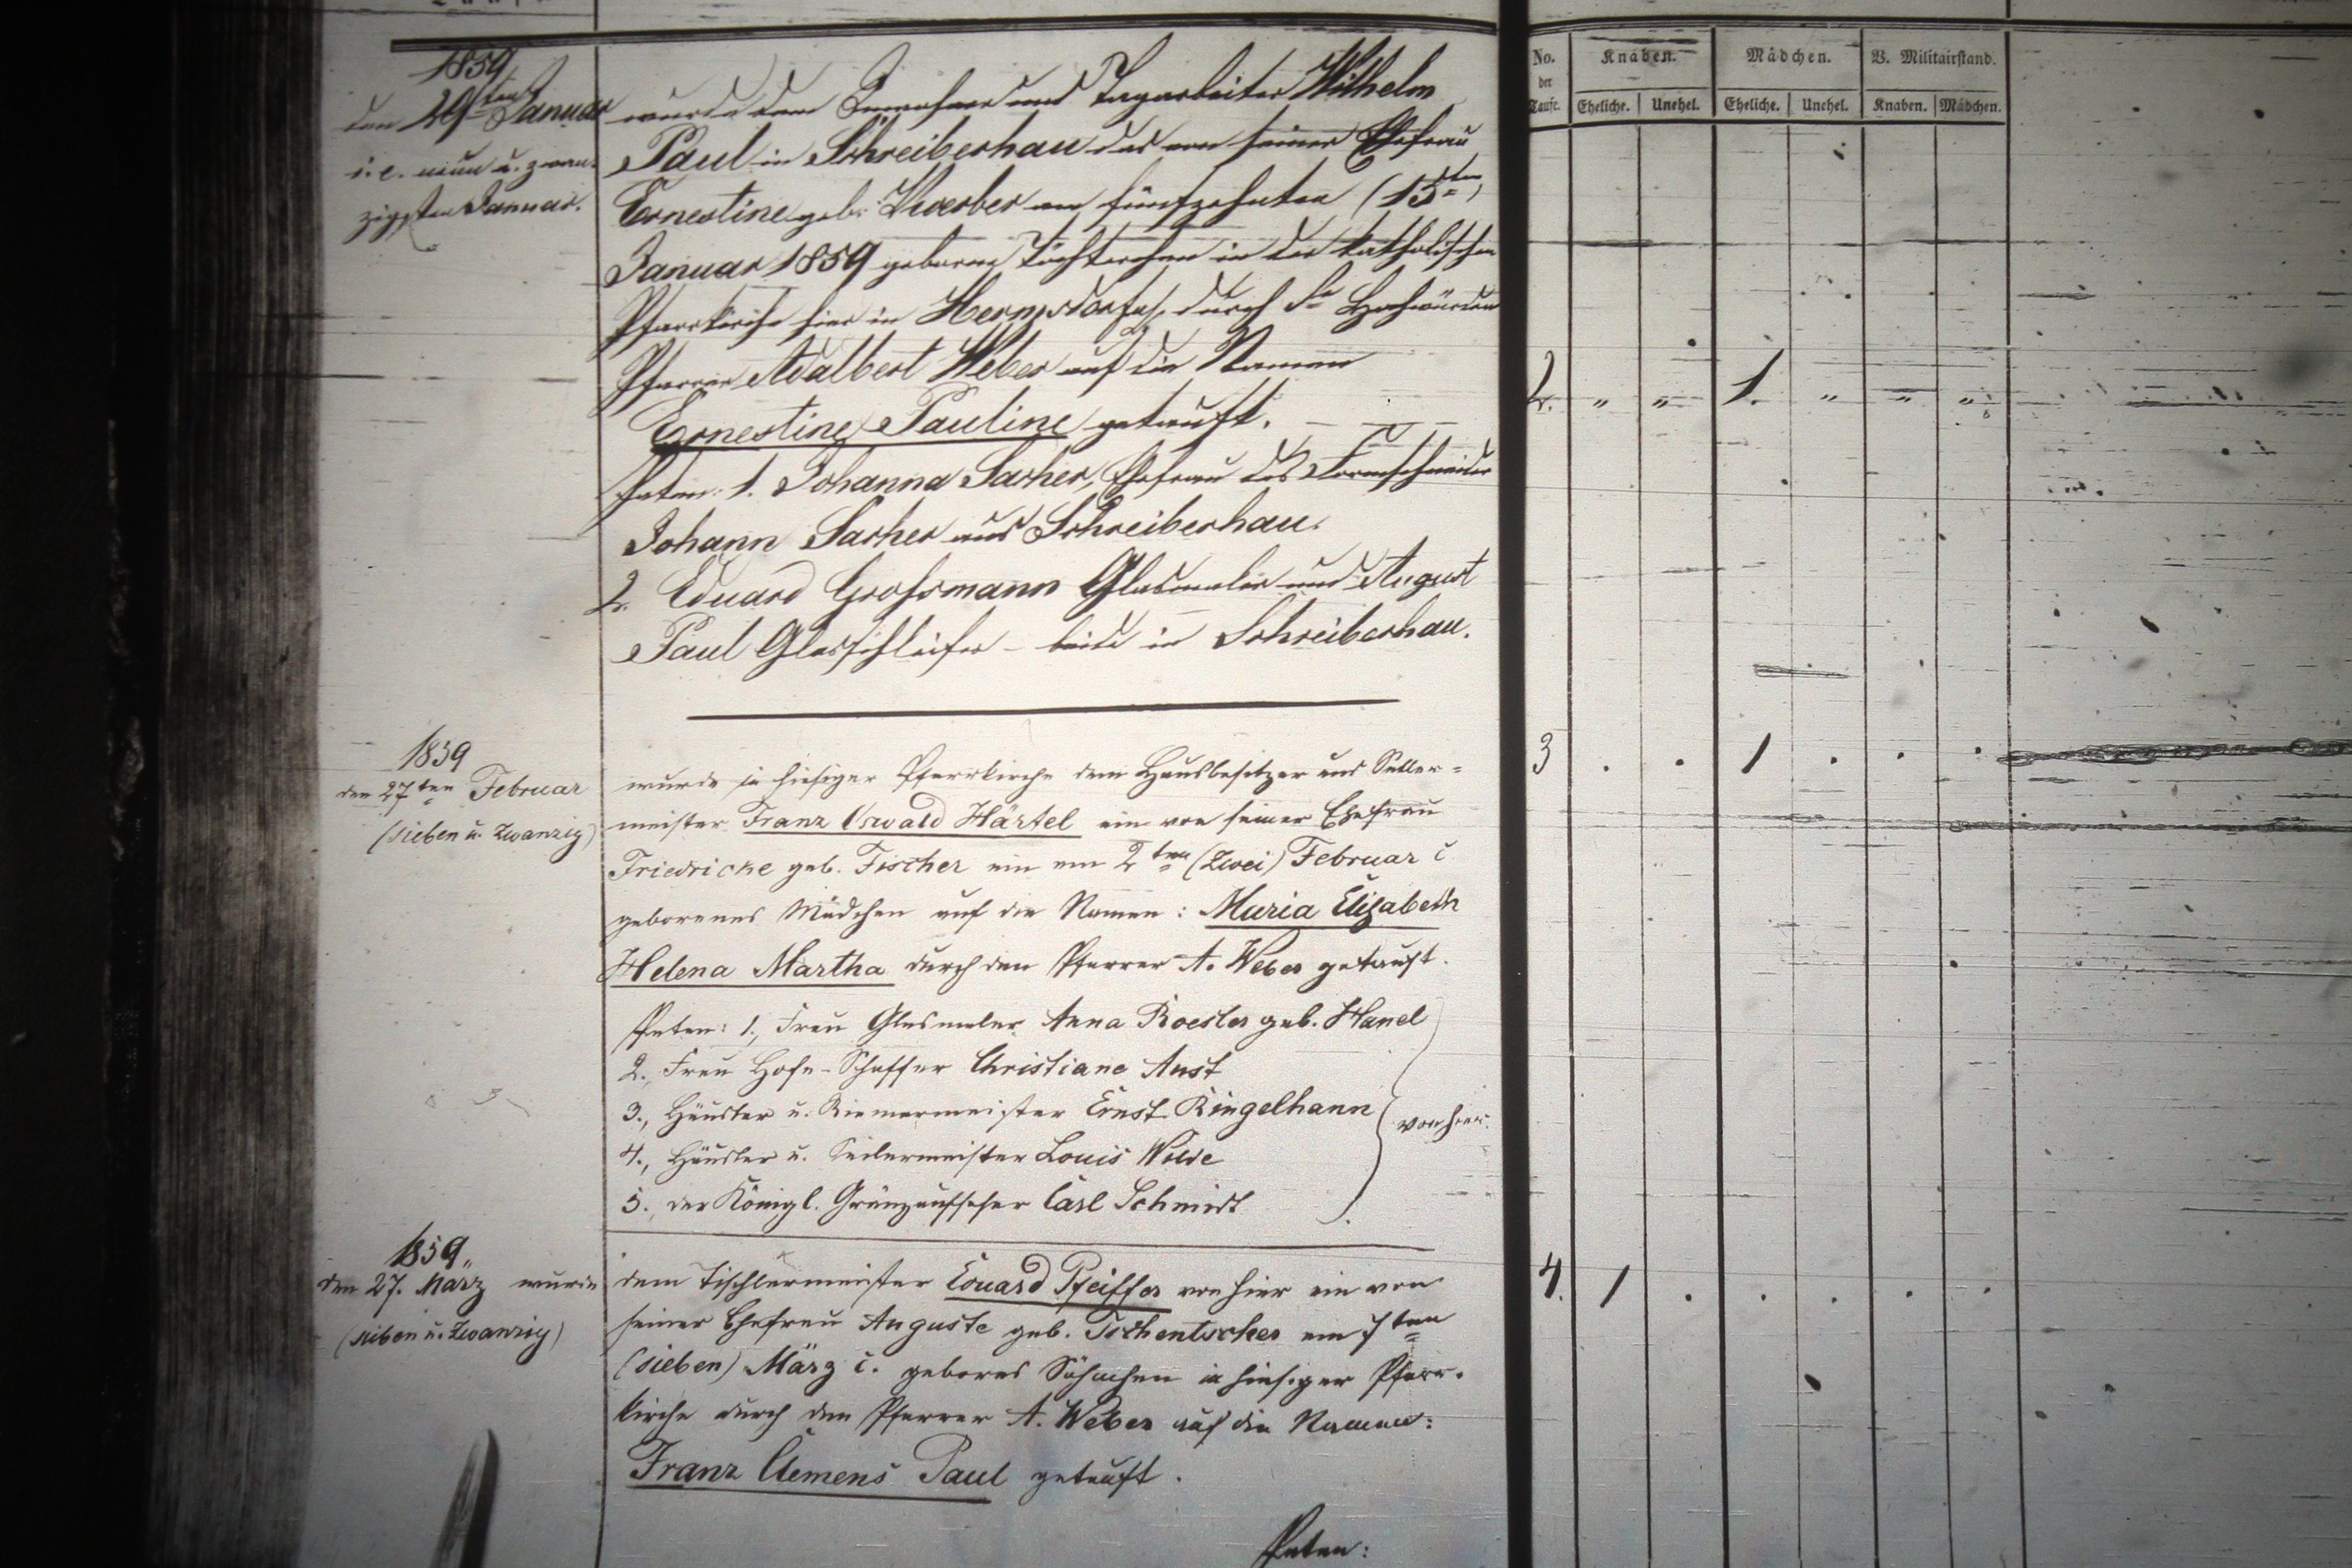 1859
den 29ten Januar
i. e. neun u. zwan-
zigsten Januar.
wurde dem Inwohner und Tagarbeiter Wilhelm
Paul in Schreiberhau das von seiner Ehefrau
Ernestine geb. am fünfzehnten (15ten)
Januar 1859 geborne Töchterchen in der katholischen
Pfarrkirche hier in Hermsdorf durch Sr Hochwürden
Pfarrer Adalbert Weber auf die Namen
Ernestine Pauline getauft.
Paten: 1. Johanna Sacher, Ehefrau des Formschneider
Johann Sacher aus Schreiberhau.
2. Eduard Grossmann Glasmaler und August
Paul Glasschleifer - beide in Schreiberhau.
1859
den 27ten Februar
(sieben u. Zwanzig)
wurde in hiesiger Pfarrkirche dem Hausbesitzer und Sattler=
meister Franz Oswald Härtel ein von seiner Ehefrau
Friedricke geb. Fischer ein am 2ten (Zwei) Februar c
geborenes Mädchen auf die Namen: Maria Elisabeth
Helena Martha durch den Pfarrer A. Weber getauft.
Paten: 1., Frau Glasmaler Anna Roesler geb. Hanel
2., Frau Hofe-Schaffer Christiane Aust
3., Häusler u. Riemermeister Ernst Ringelhann
von hier.
4., Häusler u. Seilermeister Louis Wilde
5., der Königl. Gränzaufseher Carl Schmidt
1859.
den 27. März wurde
(sieben u. Zwanzig)
dem Tischlermeister Eduard Pfeiffer von hier ein von
seiner Ehefrau Auguste geb. Tschentscher am 7ten
(sieben) März c. gebores Söhnchen in hiesiger Pfarr-
kirche durch den Pfarrer A. Weber auf die Namen:
Franz Clemens Paul getauft.
Paten:
No. der Taufe. Knaben. Mädchen. B. Militairstand.
Eheliche. Unehel. Eheliche. Unehel. Knaben. Mädchen.
2. " " 1. " " "
3 . . 1 . . .
4. 1 . . . . .